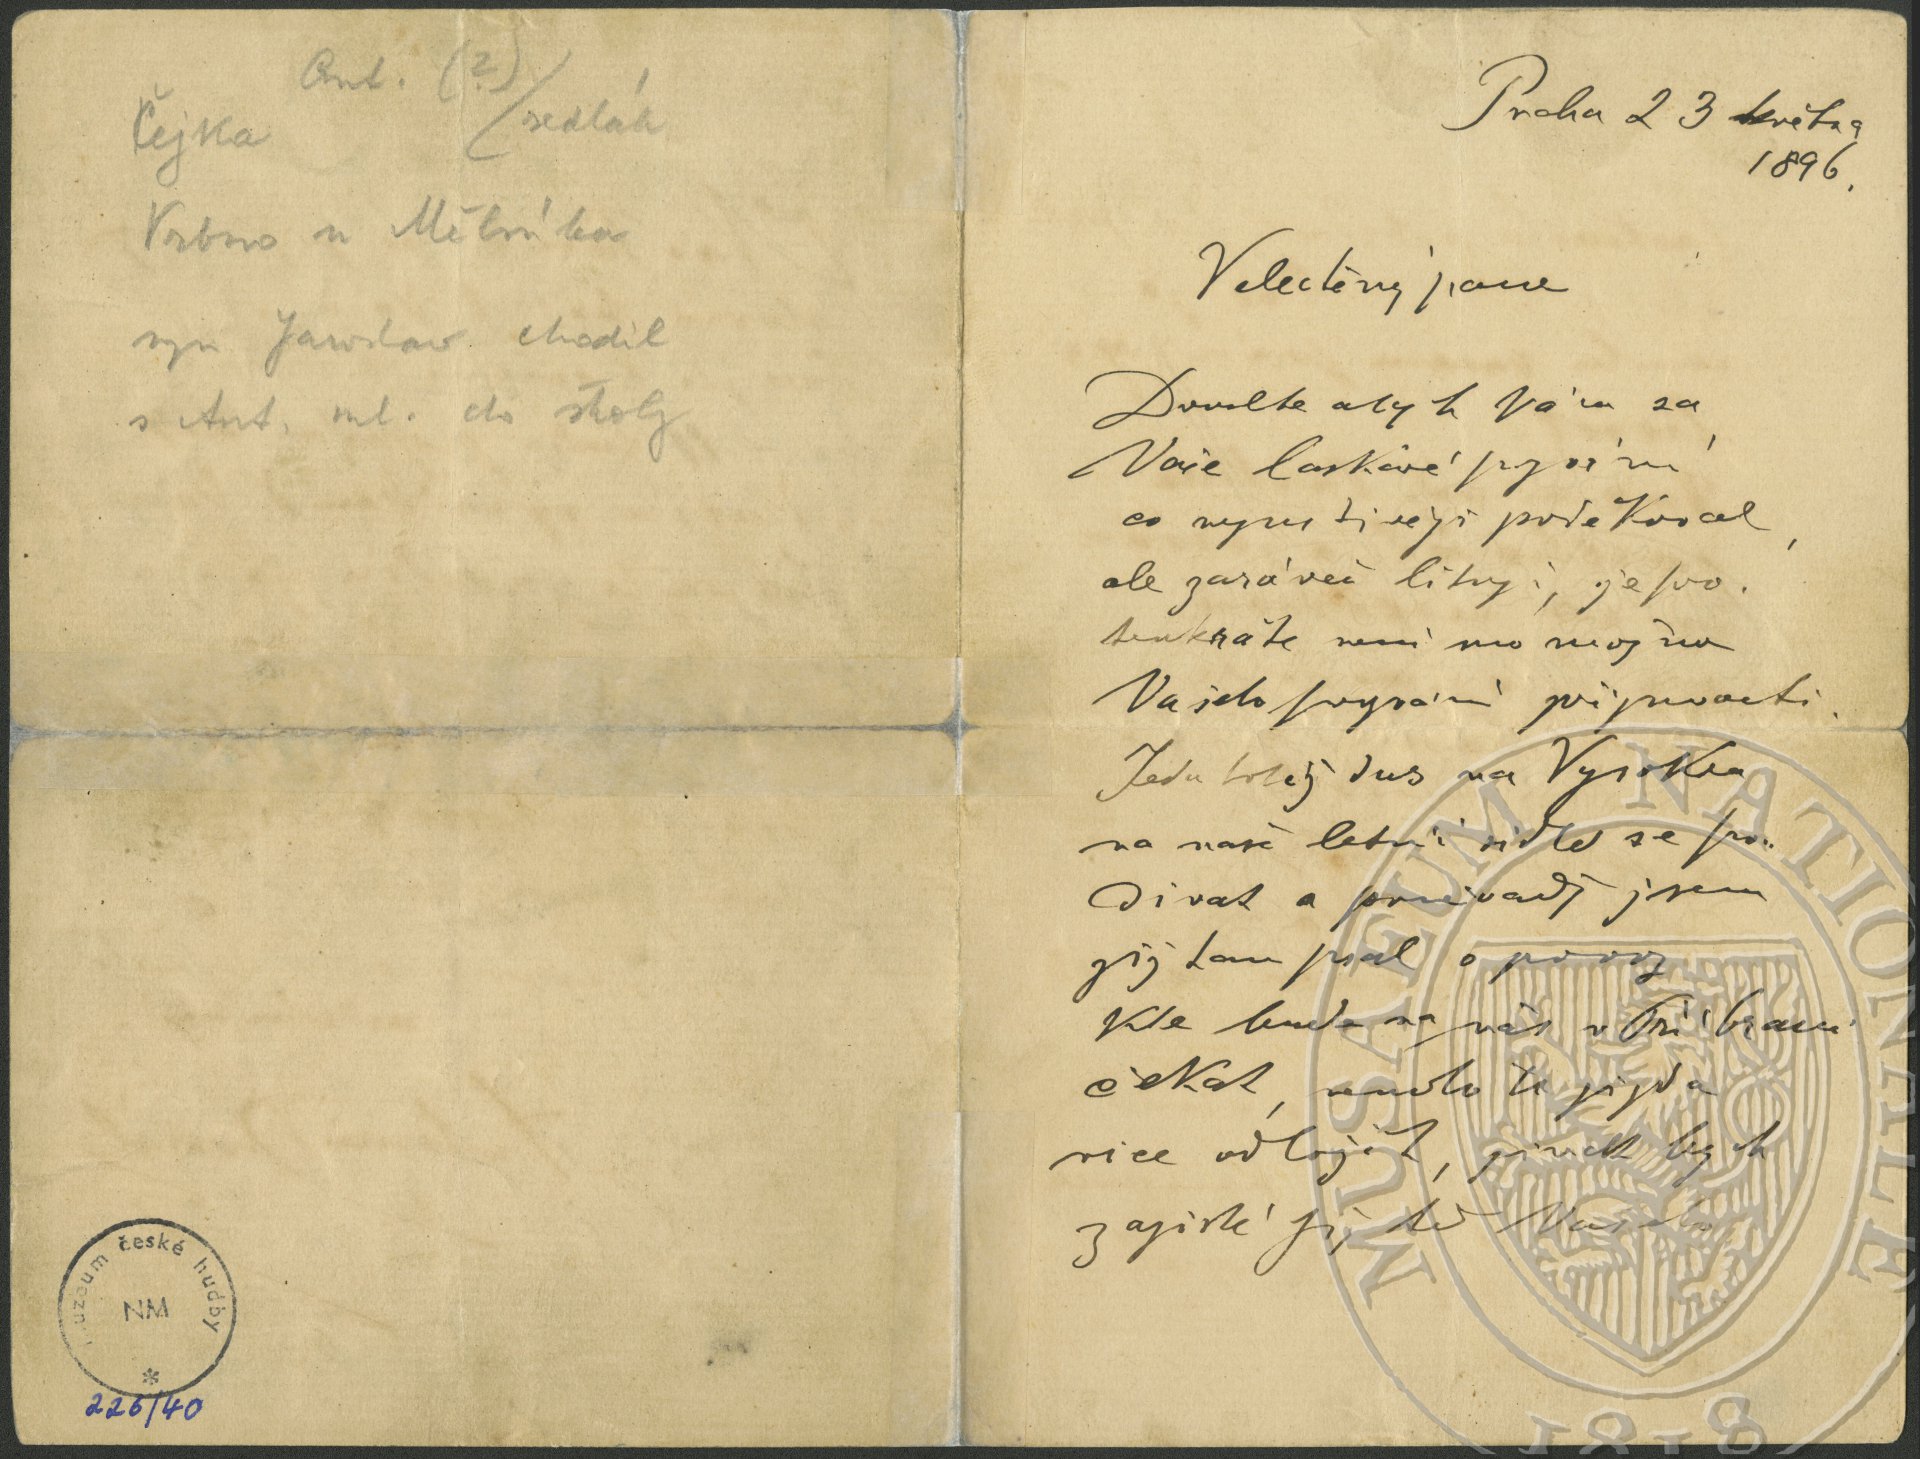 Ant. (?)
Čejka sedlák
Vrbno u Mělníka
syn Jaroslav chodil
s Ant. ml. do školy
muzeum české hudby
NM
226/40
Praha 23 května
1896.
Velectěný pane
Dovolte abych Vám za
Vaše laskavé pozvání
co nejuctivěji poděkoval,
ale zároveň lituji, že pro
tenkráte není mo možno
Vašeho pozvání přijmouti.
Jedu totiž dnes na Vysoká
na naše letní sídlo se po-
dívat a poněvadž jsem
již tam psal o povoz
kde bude na nás v Příbrami
čekat, nedá se již
více odložit, jinak bych
zajisté již Vašeho
MUSAEUM NATIONALE
1818